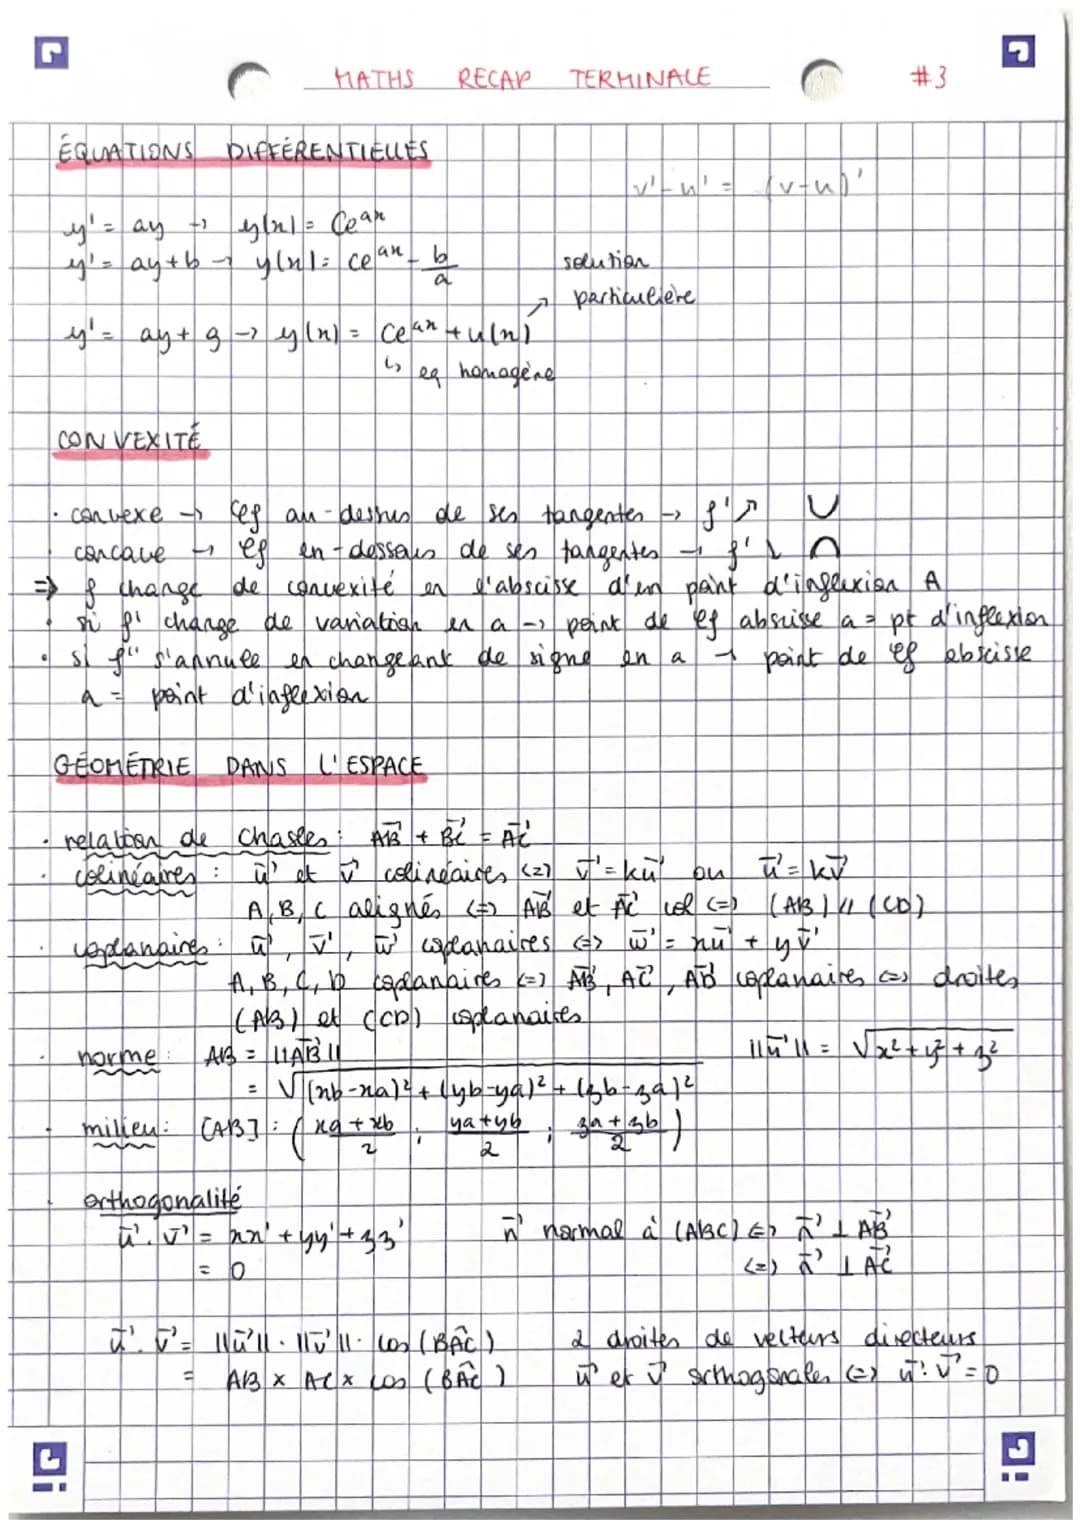 MATHS RECAP TERMINALE #3
ÉQUATIONS DIFFÉRENTIELLES
v' - u' = (v-u)'
y' = ay → y(x) = Ce^ax
y' = ay + b → y(x) = Ce^ax - b/a
solution
particulière
y' = ay + g → y(x) = Ce^ax + u(x)
↳ eq homogène
CONVEXITÉ
· convexe → Cf au-dessus de ses tangentes → f' ↗ ∪
concave → Cf en-dessous de ses tangentes → f' ↘ ∩
⇒ f change de convexité en l'abscisse d'un point d'inflexion A
· si f' change de variation en a → point de Cf abscisse a = pt d'inflexion
· si f'' s'annule en changeant de signe en a → point de Cf abscisse
a = point d'inflexion
GÉOMÉTRIE DANS L'ESPACE
· relation de Chasles : AB→ + BC→ = AC→
· colinéaires : u→ et v→ colinéaires <=> v→ = ku→ ou u→ = kv→
A, B, C alignés <=> AB→ et AC→ col <=> (AB) // (CD)
· coplanaires : u→, v→, w→ coplanaires <=> w→ = xu→ + yv→
A, B, C, D coplanaires <=> AB→, AC→, AD→ coplanaires <=> droites
(AB) et (CD) coplanaires
· norme : AB = ||AB→|| ||u→|| = √x² + y² + z²
= √(xb-xa)² + (yb-ya)² + (zb-za)²
· milieu : [AB] : (xa + xb / 2 ; ya + yb / 2 ; za + zb / 2)
· orthogonalité
u→ . v→ = xx' + yy' + zz' n→ normal à (ABC) <=> n→ ⊥ AB→
= 0 <=> n→ ⊥ AC→
u→ . v→ = ||u→|| . ||v→|| . cos (BAC^) 2 droites de vecteurs directeurs
= AB × AC × cos (BAC^) u→ et v→ orthogonales <=> u→ . v→ = 0